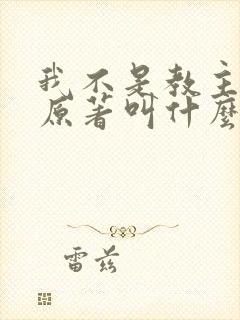 我不是教主
原著叫什麼
雷兹